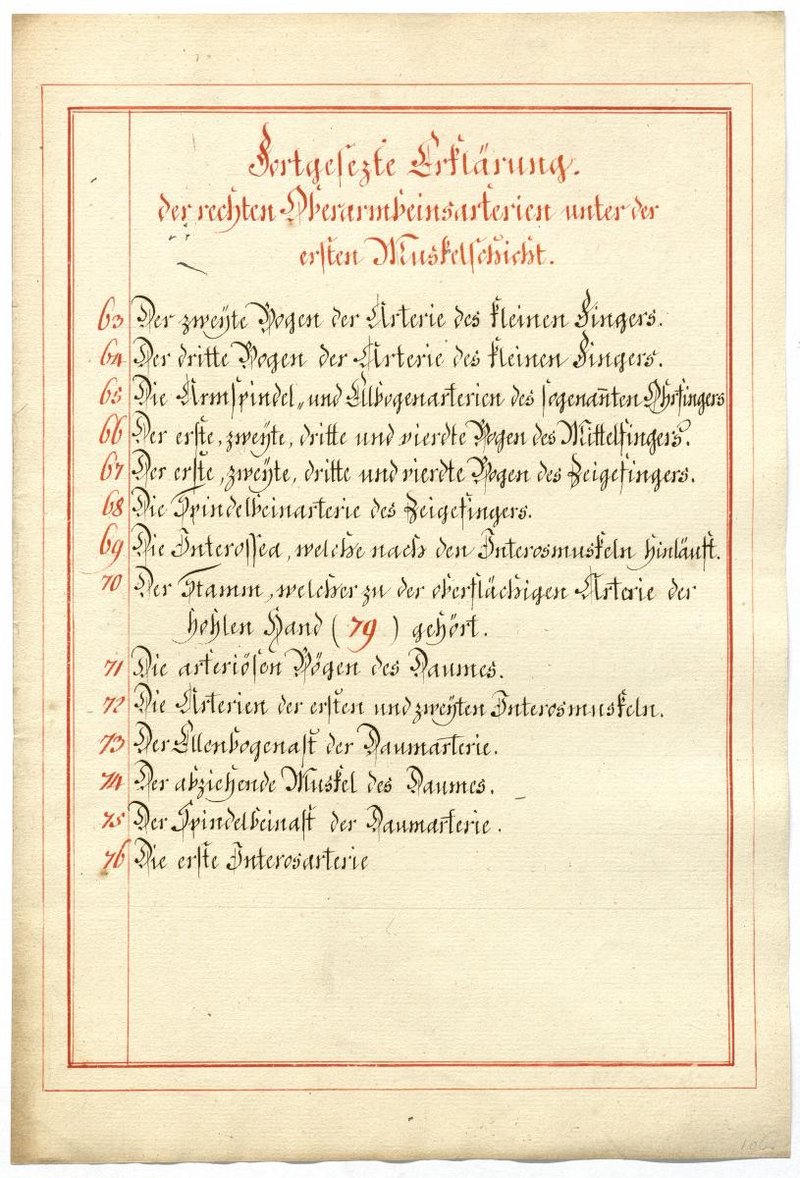 Fortgesezte Erklärung.
der rechten Oberarmbeinsarterien unter der
ersten Muskelschicht.
63 Der zweyte Bogen der Arterie des kleinen Fingers.
64 Der dritte Bogen der Arterie des kleinen Fingers.
65 Die Armspindel„ und Ellbogenarterien des sogenan̄ten Ohrfingers
66 Der erste, zweyte, dritte und vierdte Bogen des Mittelfingers.
67 Der erste, zweyte, dritte und vierdte Bogen des Zeigefingers.
68 Die Spindelbeinarterie des Zeigefingers.
69 Die Interossea, welche nach den Interosmuskeln hinläuft.
70 Der Stamm, welcher zu der oberflächigen Arterie der
hohlen Hand (79) gehört.
71 Die arteriösen Bögen des Daumes.
72 Die Arterien der ersten und zweyten Interosmuskeln.
73 Der Ellenbogenast der Daumarterie.
74 Der abziehende Muskel des Daumes.
75 Der Spindelbeinast der Daumarterie.
76 Die erste Interosarterie